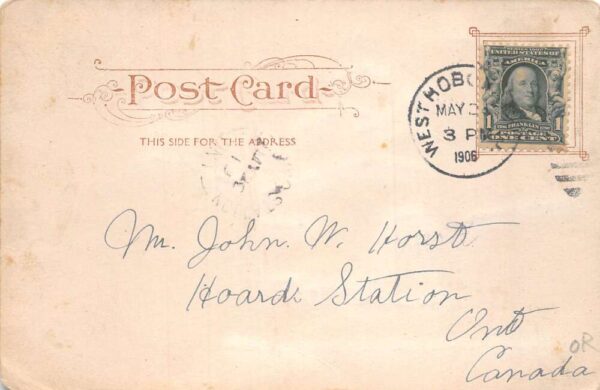 Post Card
THIS SIDE FOR THE ADDRESS
WEST HOBO
MAY 2
3 P
1906
UNITED STATES OF
AMERICA
1
FRANKLIN
POSTAGE
ONE CENT
Mr. John. W. Horst
Hoards Station
Ont
Canada
OR